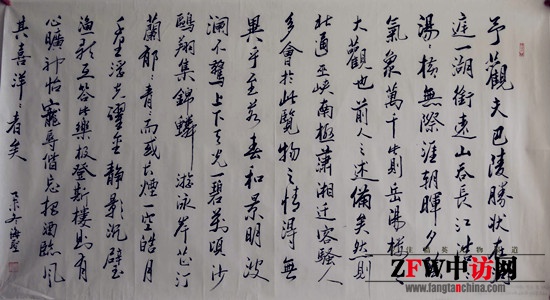 予觀夫巴陵勝状在
庭一湖銜遠山吞長江浩
湯〻橫無際涯朝暉夕
氣象萬千此則岳陽樓
大觀也前人之述備矣然則
北通巫峽南極瀟湘遷客騷人
多會於此覽物之情得無
異乎至若春和景明波
瀾不驚上下天光一碧萬頃沙
鷗翔集錦鱗游泳岸芷汀
蘭郁〻青〻而或長煙一空皓月
千里浮光躍金静影沉璧
漁歌互答此樂极登斯樓也有
心曠神怡寵辱偕忘把酒臨風
其喜洋〻者矣
ZFW中访网
www.fangtanchina.com